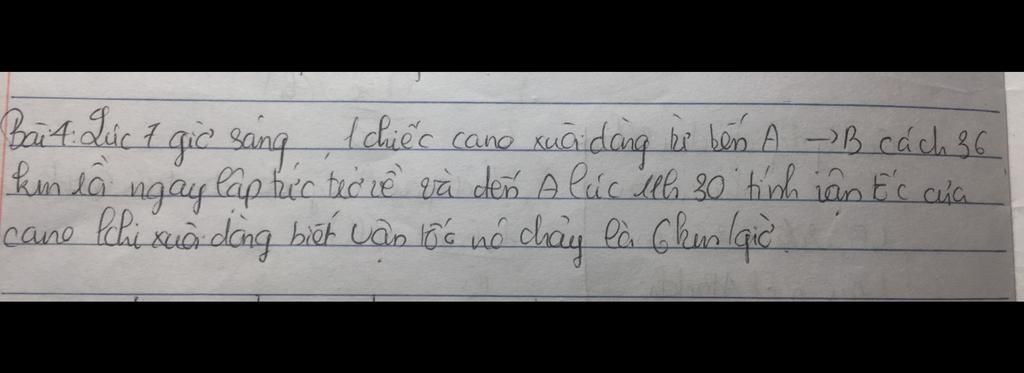 Bài 4: Lúc 7 giờ sáng, 1 chiếc cano xuôi dòng từ bến A → B cách 36
km rồi ngay lập tức trở về và đến A lúc 11h 30 tính vận tốc của
cano khi xuôi dòng biết vận tốc nó chảy là 6km/giờ